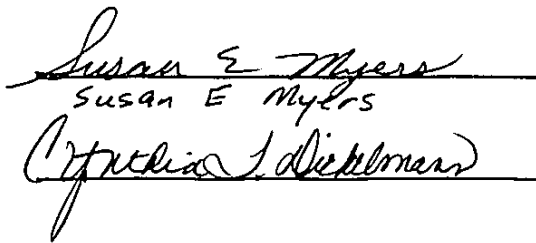 Susan E Myers
Susan E Myers
Cynthia L. Dickelmann